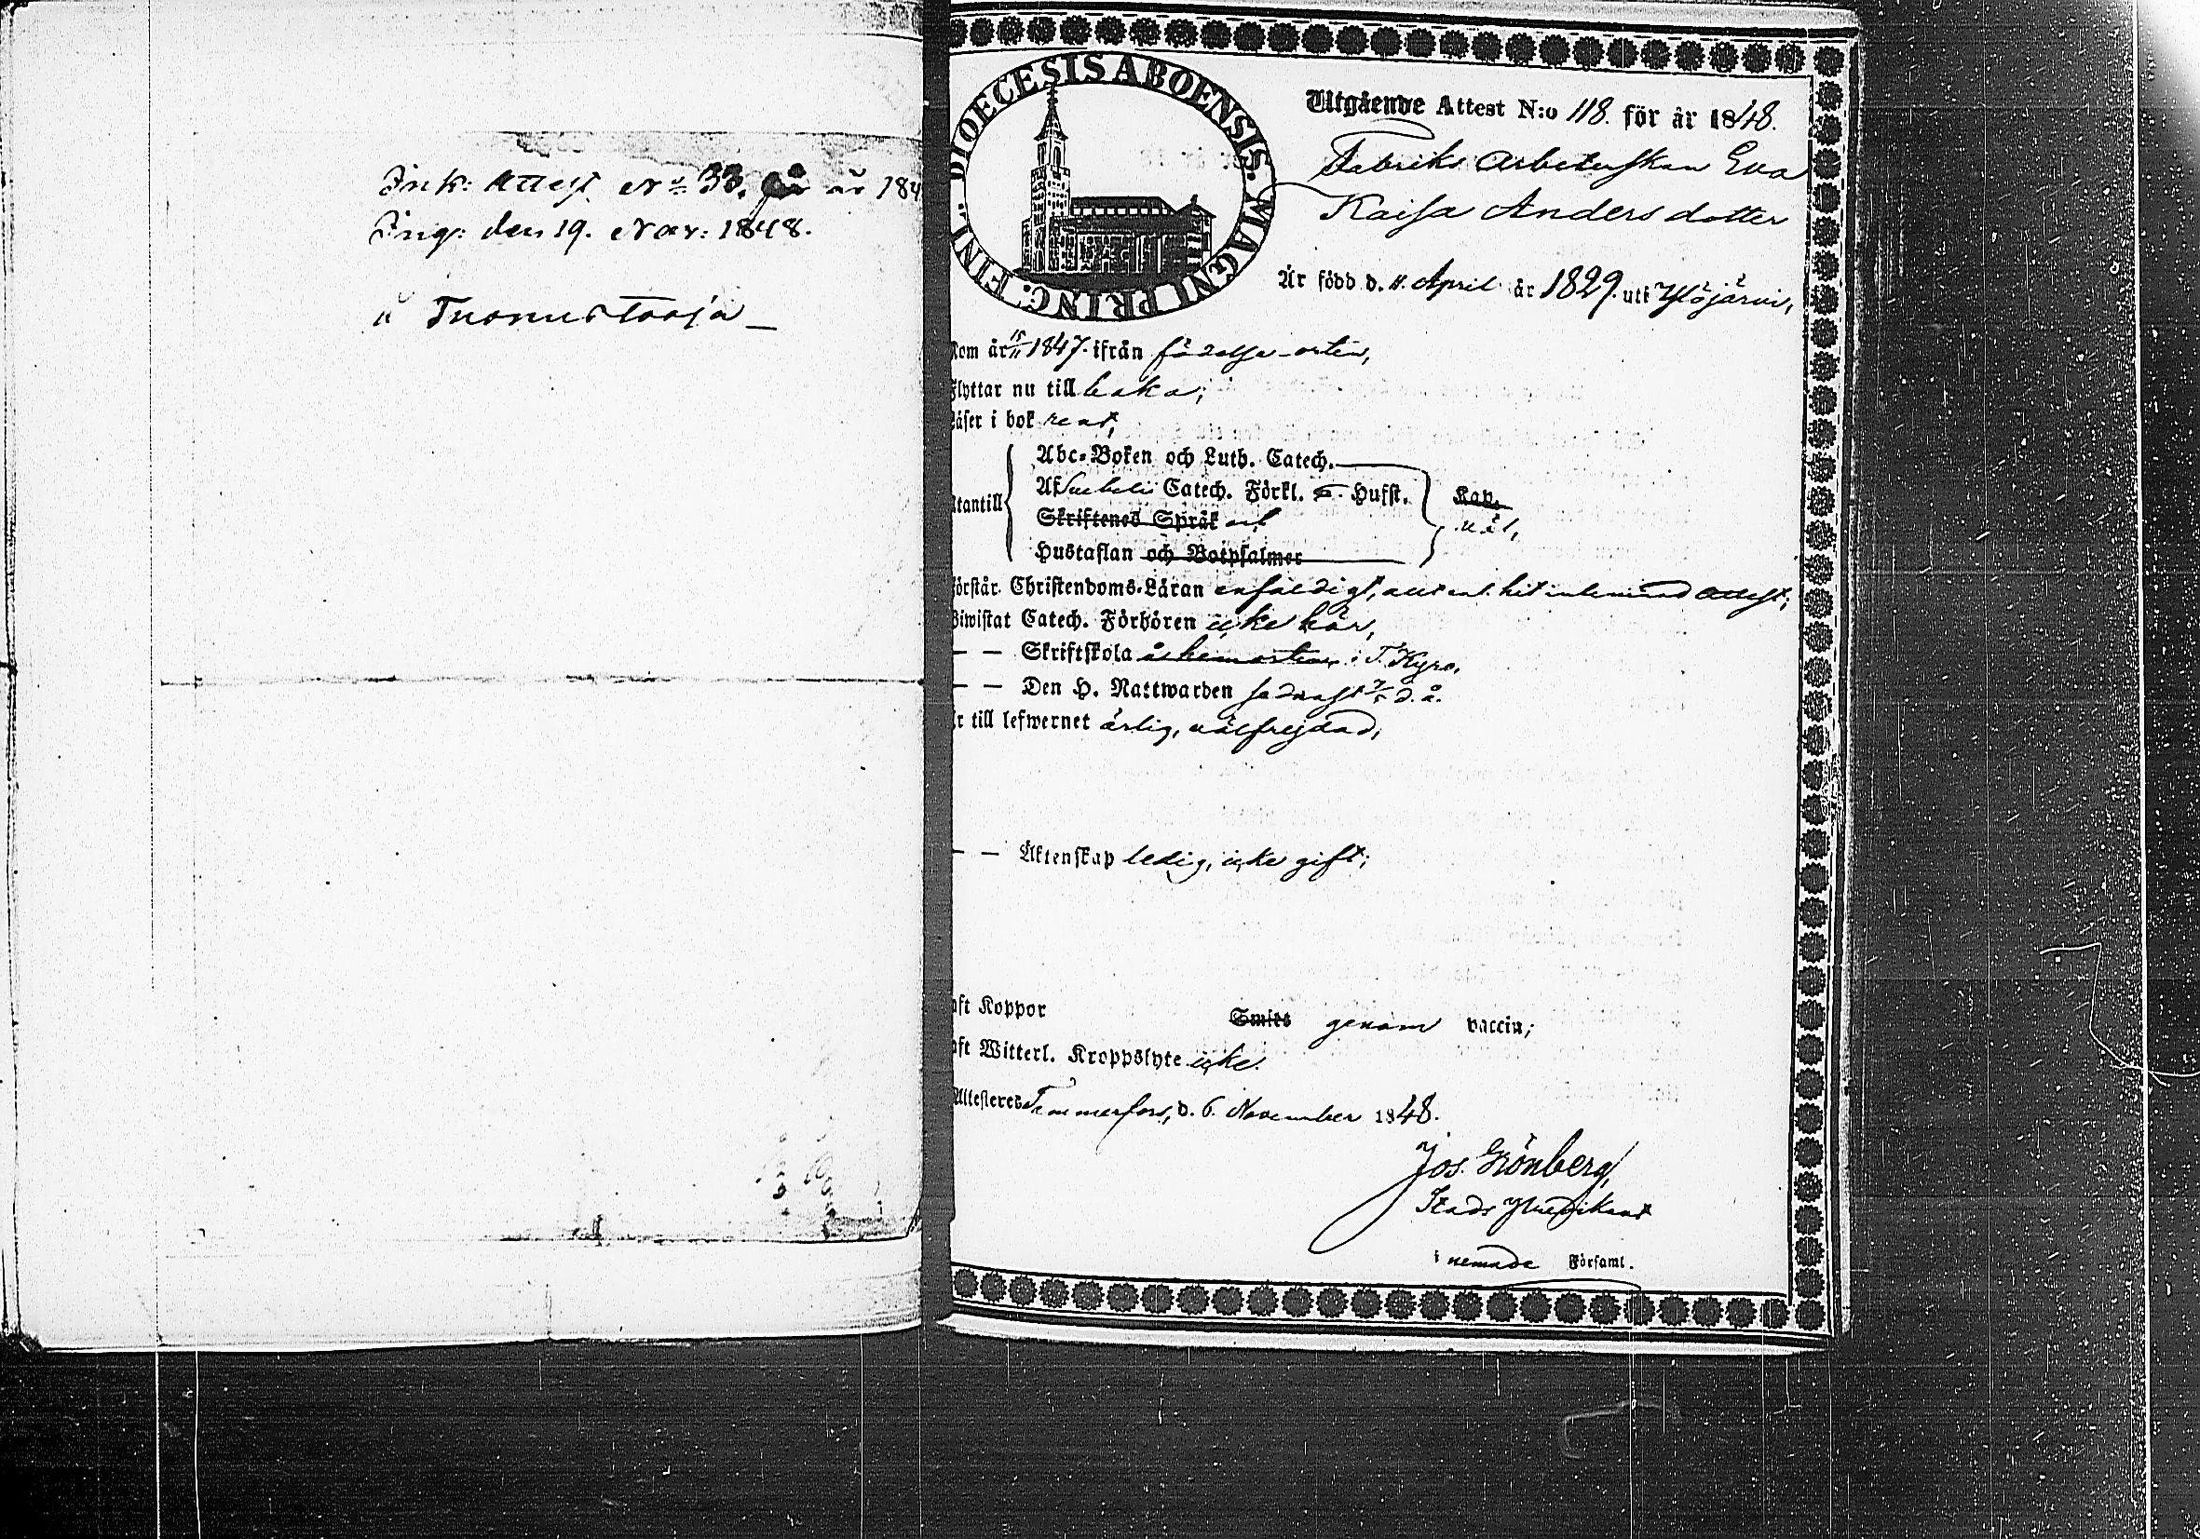 Ink: Attest No 33. för år 184
Ing: den 19. Nov: 1848.
DIOECESIS ABOENSIS. MAGNI PRINC. FINL.
Utgående Attest N:o 118. för år 1848.
Fabriks Arbeterskan Eva
Kaisa Anders dotter
Är född d. 11. April år 1829. uti Ylöjärvi,
kom år 15/11 1847. ifrån födelse-orten,
flyttar nu till baka;
läser i bok rent,
Abc-Boken och Luth. Catech.
Af Svebelii Catech. Förkl. Hufst. Kap.
utantill
Skriftenes Språk och väl,
Hustaflan och Botpsalmer
förstår Christendoms-Läran enfaldigt, allt enl. hit inlemnad Attest;
Biwistat Catech. Förhören icke här,
— — Skriftskola i T. Kyro,
— — Den H. Nattwarden sednast d. å.
är till lefwernet ärlig, välfrejdad;
— — Äktenskap ledig, icke gift;
aft Koppor Smitt genom vaccin;
aft Witterl. Kroppslyte icke.
Attesteres Tammerfors, d. 6. November 1848.
Jos. Grönberg,
Stads Predikant
i nemnde Församl.